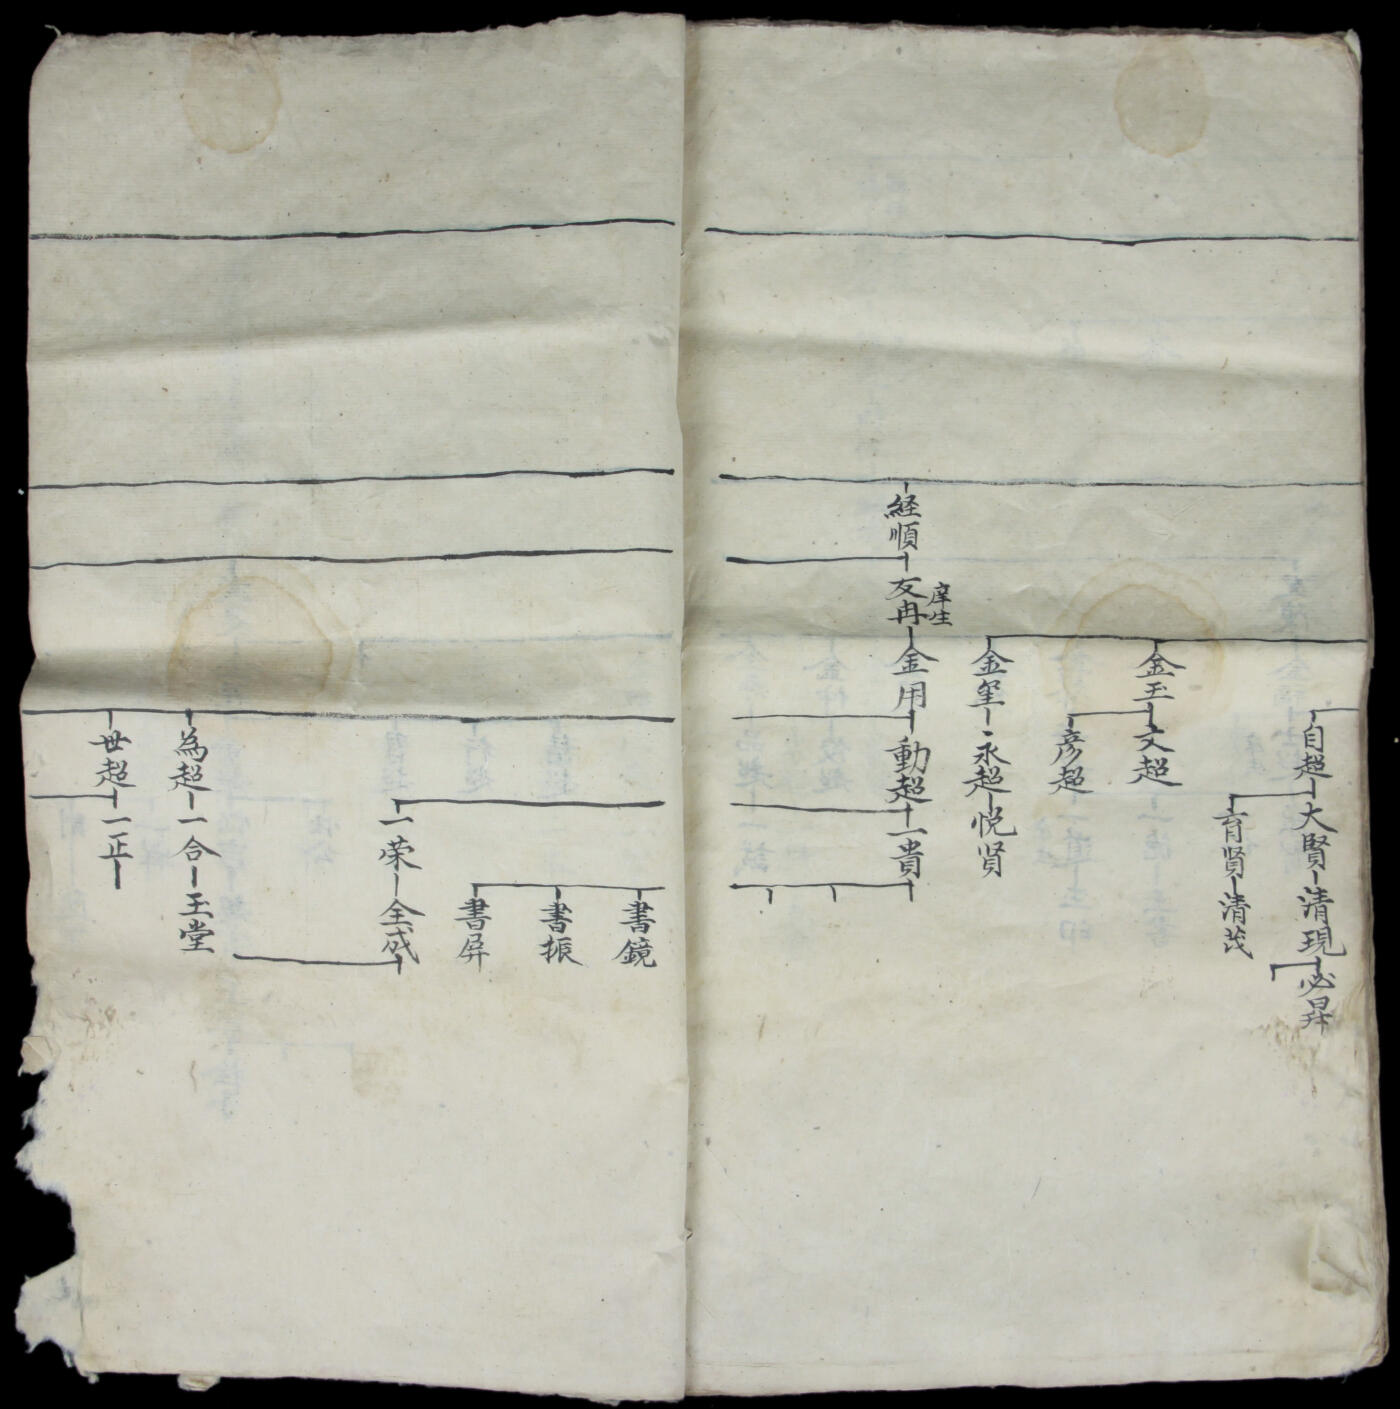 自超 大賢 清現 必昇
育賢 清茂
金玉 文超
彦超
金玺 永超 悦贤
経順 友冉 金用 動超 一貴
庠生
書鏡
書振
書屏
一荣 全成
為超 一合 玉堂
世超 一正